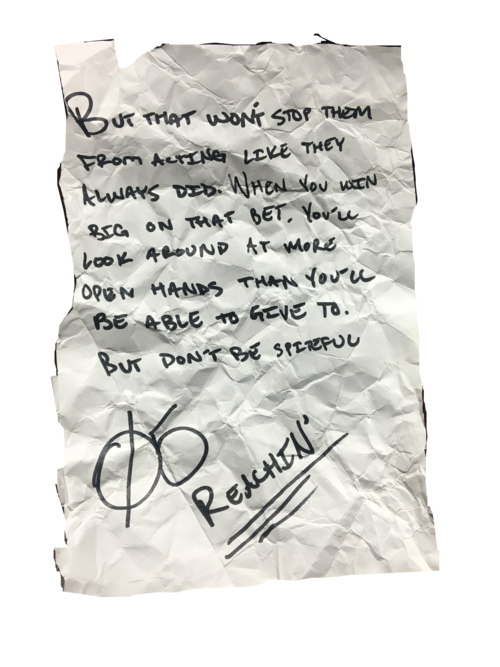 BUT THAT WON'T STOP THEM
FROM ACTING LIKE THEY
ALWAYS DID. WHEN YOU WIN
BIG ON THAT BET, YOU'LL
LOOK AROUND AT MORE
OPEN HANDS THAN YOU'LL
BE ABLE TO GIVE TO.
BUT DON'T BE SPITEFUL
Ø5
REACHIN'